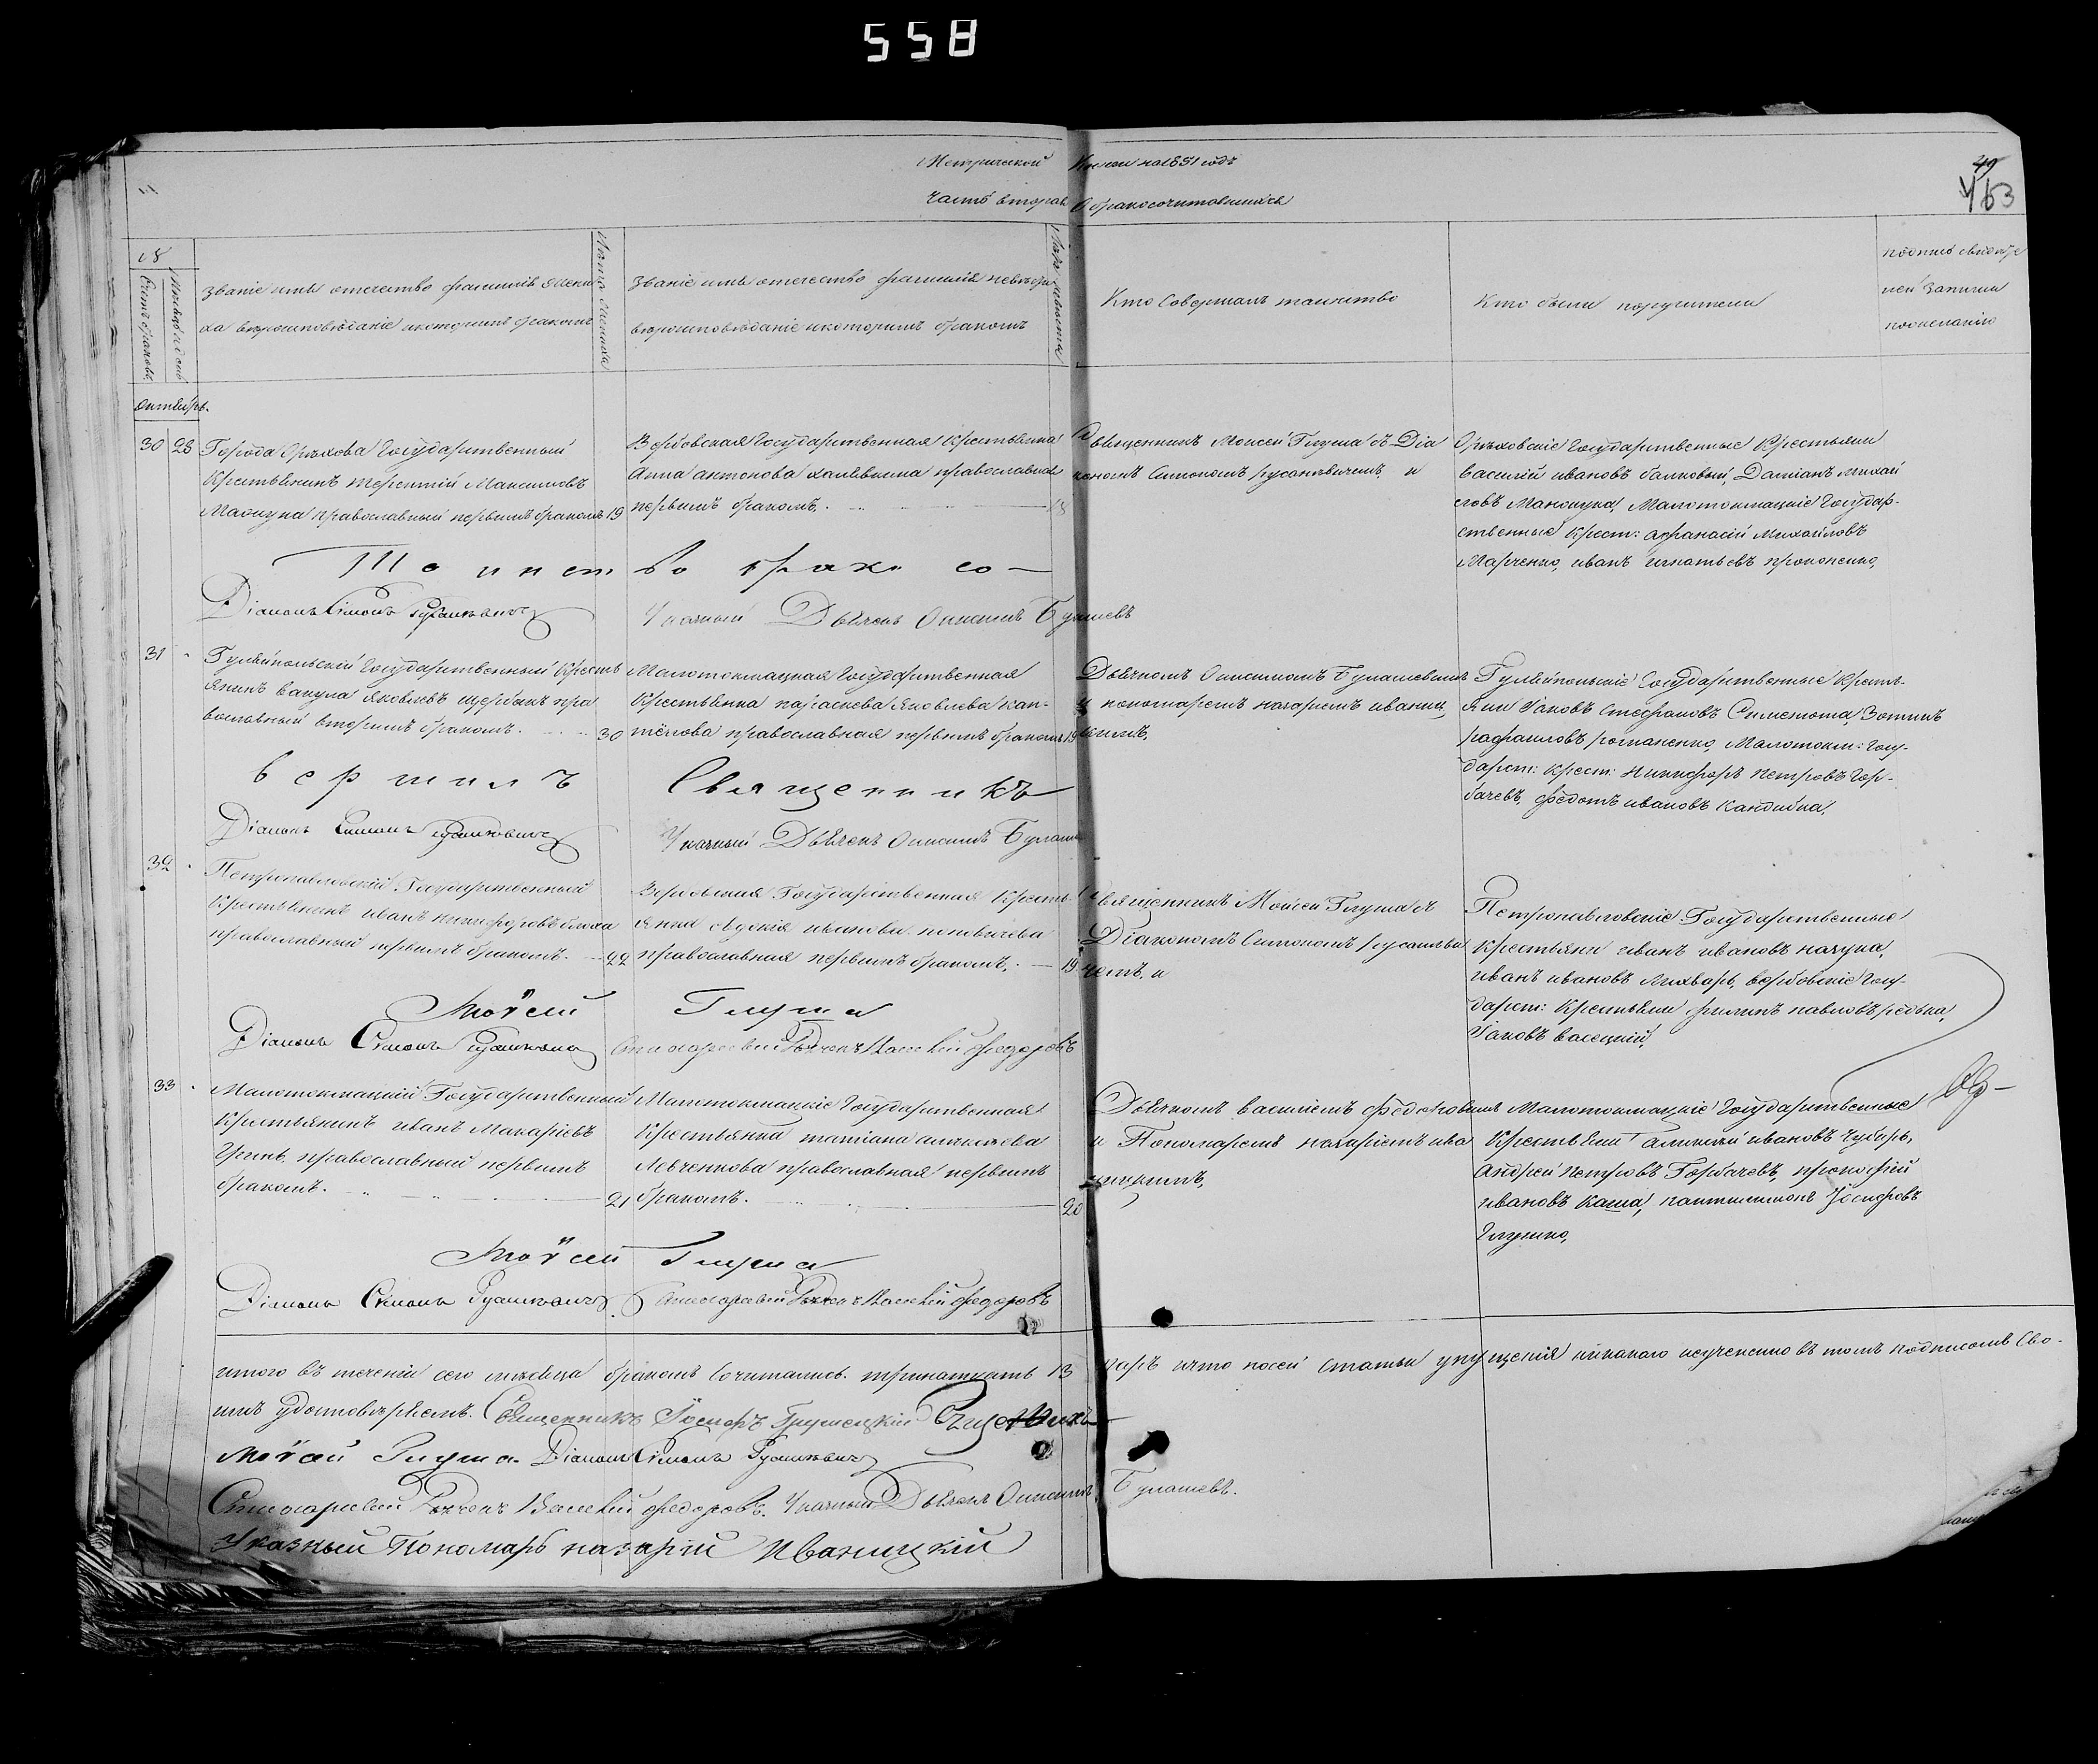 558
Метрической Книги на 1851 годъ
49
463
Часть вторая О бракосочитавшихся
18
Счетъ браковъ
Мѣсяцъ и день
Званіе имя отечество фамилія жени
ха вѣроисповѣданіе и которимъ бракомъ
Лѣта жениха
Званіе имя отечество фамилія невѣсти
вѣроисповѣданіе и которимъ бракомъ
Лѣта невѣсти
Кто Совершалъ таинство
Кто были поручители
подпись свидѣте
лей записи
по желанію
октябрь.
30 28
Города Орѣхова Государственный
Крестьянинъ терентій Максимовъ
православный первимъ бракомъ 19
Вербовская Государственная Крестьянка
Анна антонова халявкина православная
первимъ бракомъ. 18
Священникъ Моисей Глуша съ Діа
кономъ Симономъ русаневичемъ, и
Орѣховскіе Государственные Крестьяни
василій ивановъ балковый, Даміанъ михай
ловъ Малотокмацкіе Государ-
ственные Крест: афанасій михайловъ
Марченко, иванъ игнатьевъ прокопенко,
Та и нст во брака со -
Діаконъ Симонъ Русаневичъ
Указный Дьячекъ Онисимъ Булашевъ
31
Гуляйпольскій Государственный Кресть
янинъ вакула яковлевъ щербакъ пра
вославный вторимъ бракомъ. 30
Малотокмацкая Государственная
Крестьянка параскева Яковлева кап-
православная первимъ бракомъ 19
Дьячкомъ Онисимомъ Булашевимъ
и пономаремъ назаріемъ иваниц
кимъ,
Гуляйпольскіе Государственные Кресть-
яни Іаковъ Стефановъ Зотикъ
рафаиловъ романенко, Малотокм: Госу-
дарст: Крест: никифоръ петровъ Гор-
бачевъ, федотъ ивановъ Кандибка,
вершилъ Священникъ
Діаконъ Симонъ Русаневичъ
Указный Дьячекъ Онисимъ Булашевъ
32
Петропавловскій Государственный
Крестьянинъ иванъ никифоровъ блоха
православный первимъ бракомъ. 22
Вербовская Государственная Кресть
янка евдокія иванова
православная первимъ бракомъ, 19
Священникъ Моисей Глуша съ
Діакономъ Симономъ русаневи
чемъ, и
Петропавловскіе Государственные
Крестьяни иванъ ивановъ
иванъ ивановъ лихварь, вербовскіе Госу-
дарст: Крестьяни филипъ павловъ редька,
Іаковъ васецкій,
Моѵсей Глуша
Діаконъ Симонъ Русаневичъ
Стихарный Дьячекъ Василій федоровъ
33
Малотокмацкій Государственный
Крестьянинъ иванъ Макаріевъ
Гринь, православный первимъ
бракомъ. 21
Малотокмацкіе Государственная
Крестьянка татіана
Левченкова православная первимъ
бракомъ. 20
Дьячкомъ василіемъ федоровимъ
и Пономаремъ назаріемъ ива
ницкимъ,
Малотокмацкіе Государственные
Крестьяни ивановъ Чубарь,
андрей петровъ Горбачевъ, прокофій
ивановъ каша, пантилимонъ Іосифовъ
Глушко,
Моѵсей Глуша
Діаконъ Симонъ Русаневичъ
Стихарный Дьячекъ Василій федоровъ
итого въ теченіи сего мѣсяца бракомъ Сочитались тринатцать 13 паръ и что по сей статьи упущенія никакого неучинено въ томъ подписомъ Сво-
имъ удостовѣряемъ. Священникъ Іосифъ Священникъ
Моѵсей Глуша. Діаконъ Симонъ Русаневичъ
Стихарный Дьячекъ Василій федоровъ. Указный Дьячекъ Онисимъ Булашевъ.
Указный Пономарь назарій Иваницкій